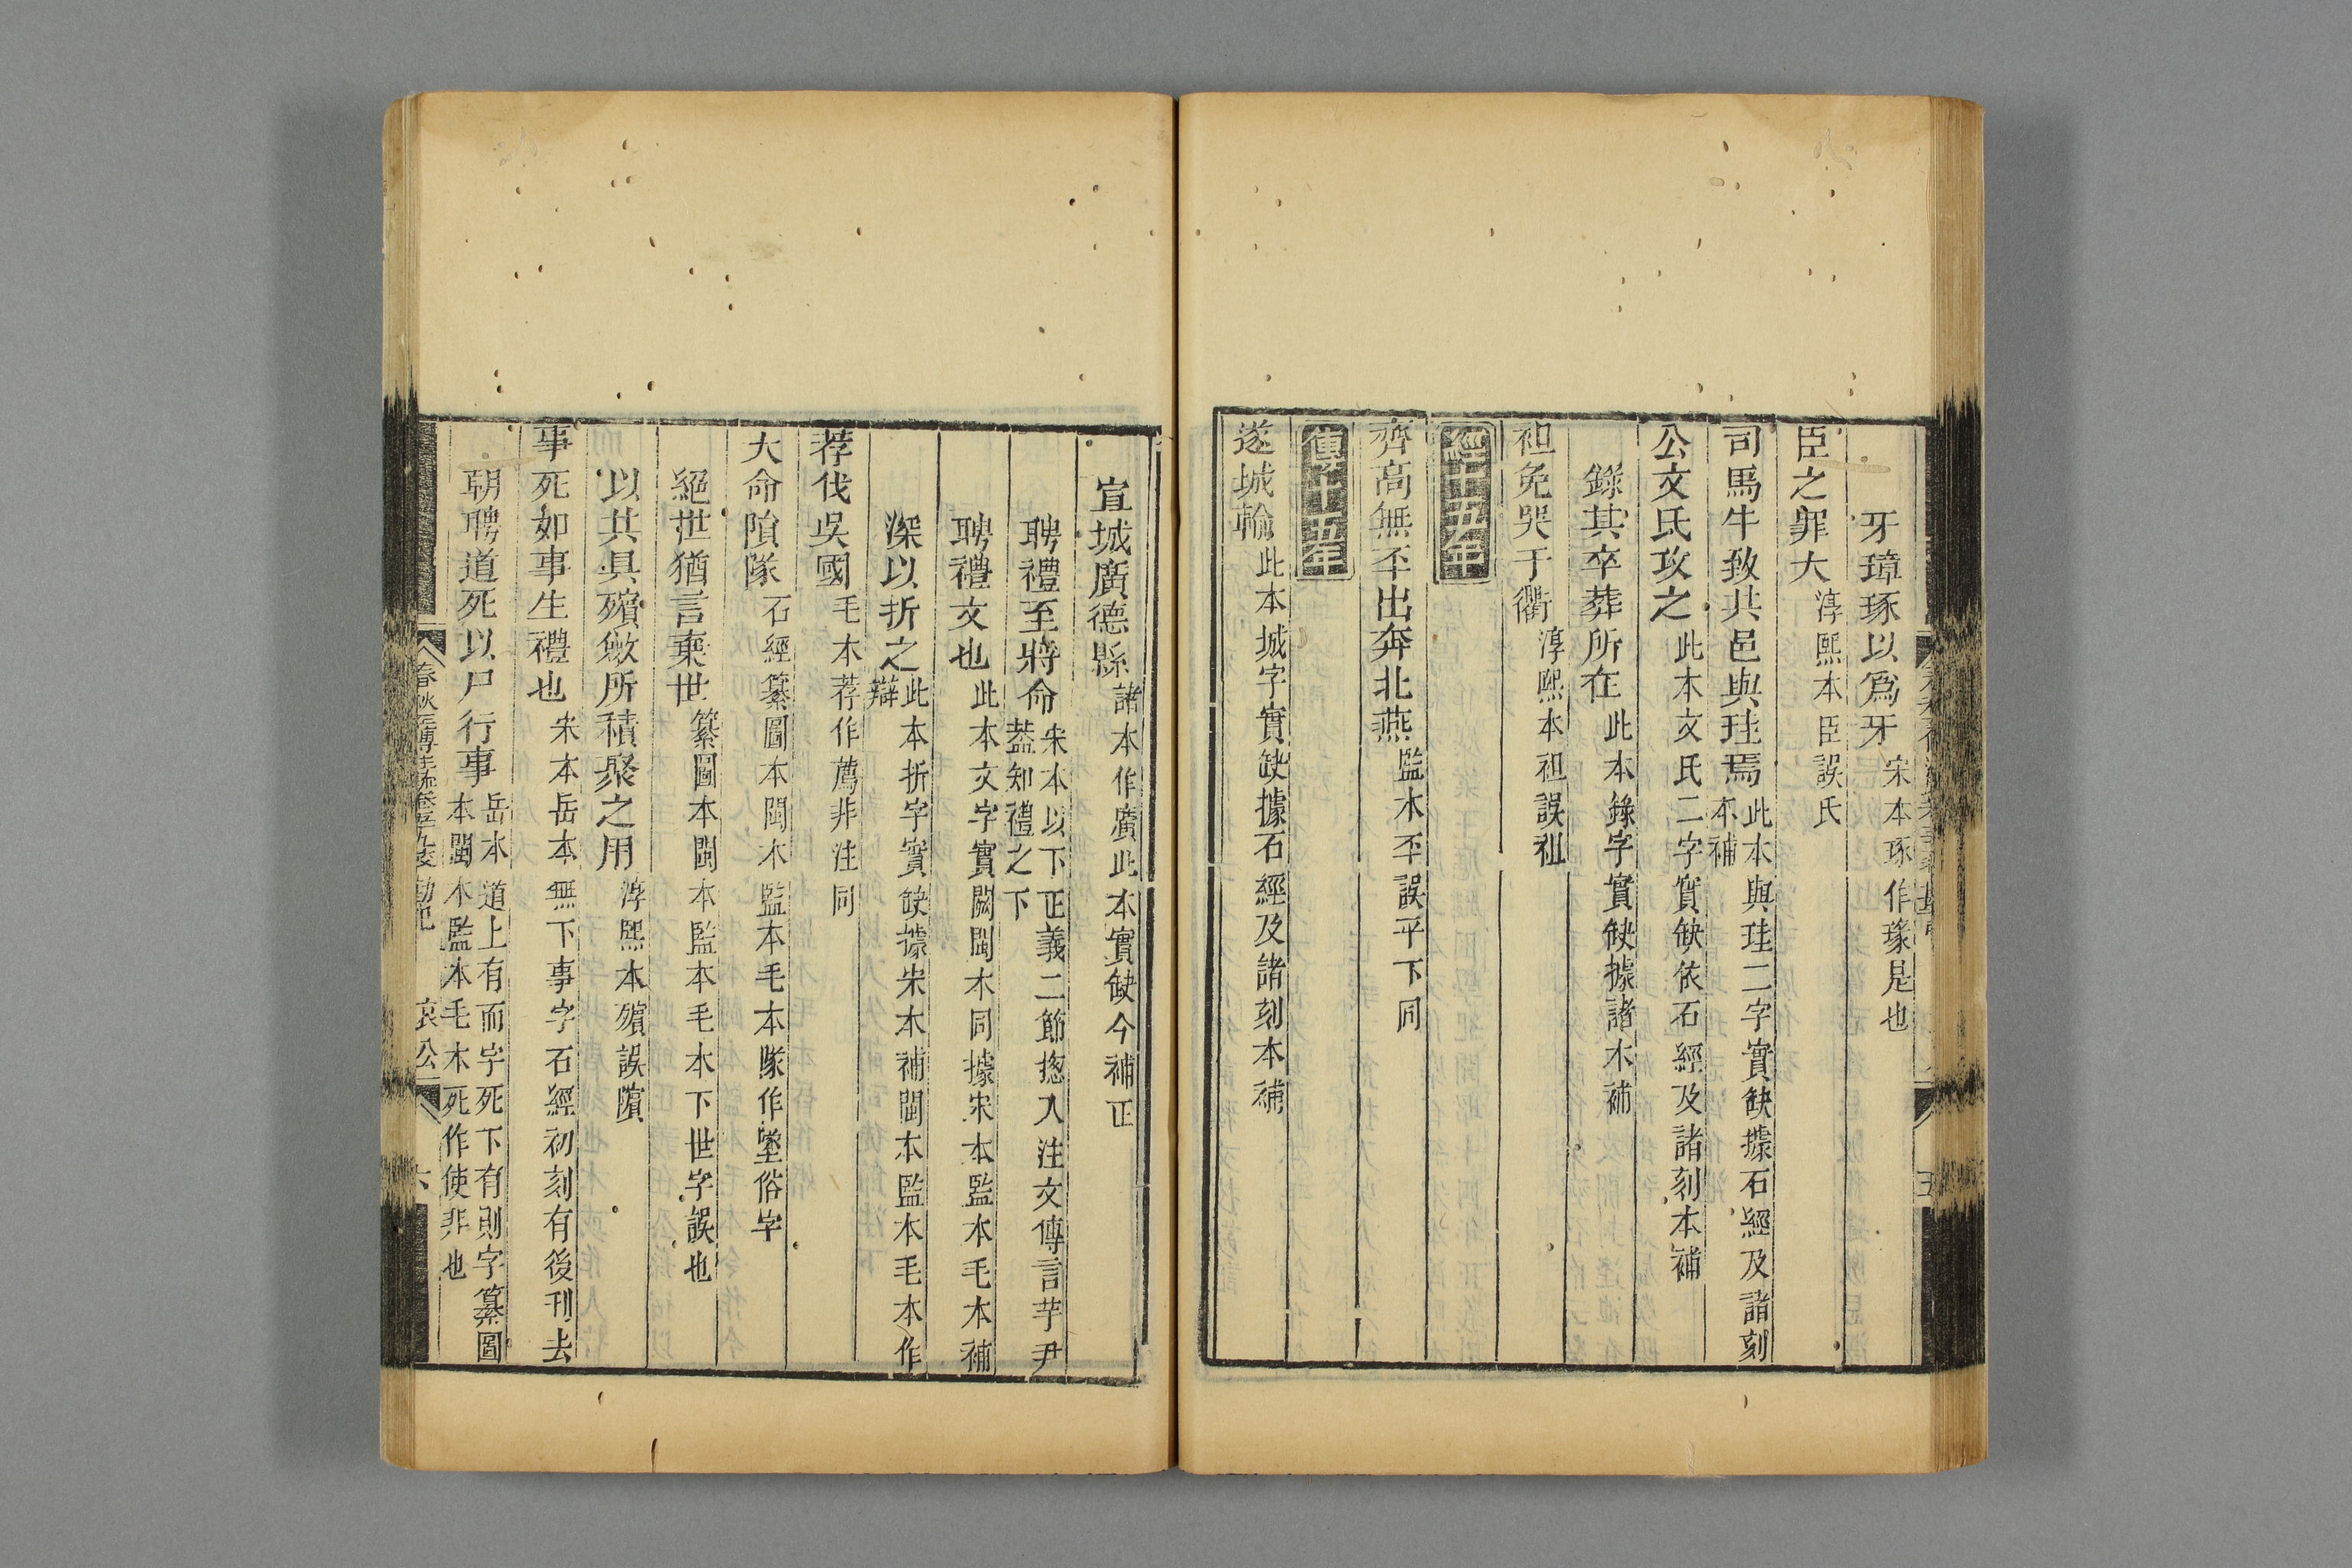 牙璋琢以爲牙宋本琢作瑑是也
臣之罪大淳熙本臣誤氏
司馬牛致其邑與珪焉此本與珪二字實缺據石經及諸刻本補
公文氏攻之此本文氏二字實缺依石經及諸刻本補
錄其卒葬所在此本錄字實缺據諸本補
袒免哭于衢淳熙本袒誤袓
經十五年
齊高無㔻出奔北燕監本㔻誤平下同
傳十五年
遂城輸此本城字實缺據石經及諸刻本補
宣城廣德縣諸本作廣此本實缺今補正
聘禮至將命宋本以下正義二節揔入注文傳言芋尹蓋知禮之下
聘禮文也此本文字實闕閩本同據宋本監本毛本補
深以折之此本折字實缺據宋本補閩本監本毛本作辯
荐伐吳國毛本荐作薦非注同
大命隕隊石經纂圖本閩本監本毛本隊作墜俗字
絕世猶言棄世纂圖本閩本監本毛本下世字誤也
以共具殯斂所積聚之用淳熙本殯誤隕
事死如事生禮也宋本岳本無下事字石經初刻有後刊去
朝聘道死以尸行事岳本道上有而字死下有則字纂圖本閩本監本毛本死作使非也
春秋左傳注疏卷五十九校勘記 哀公 六